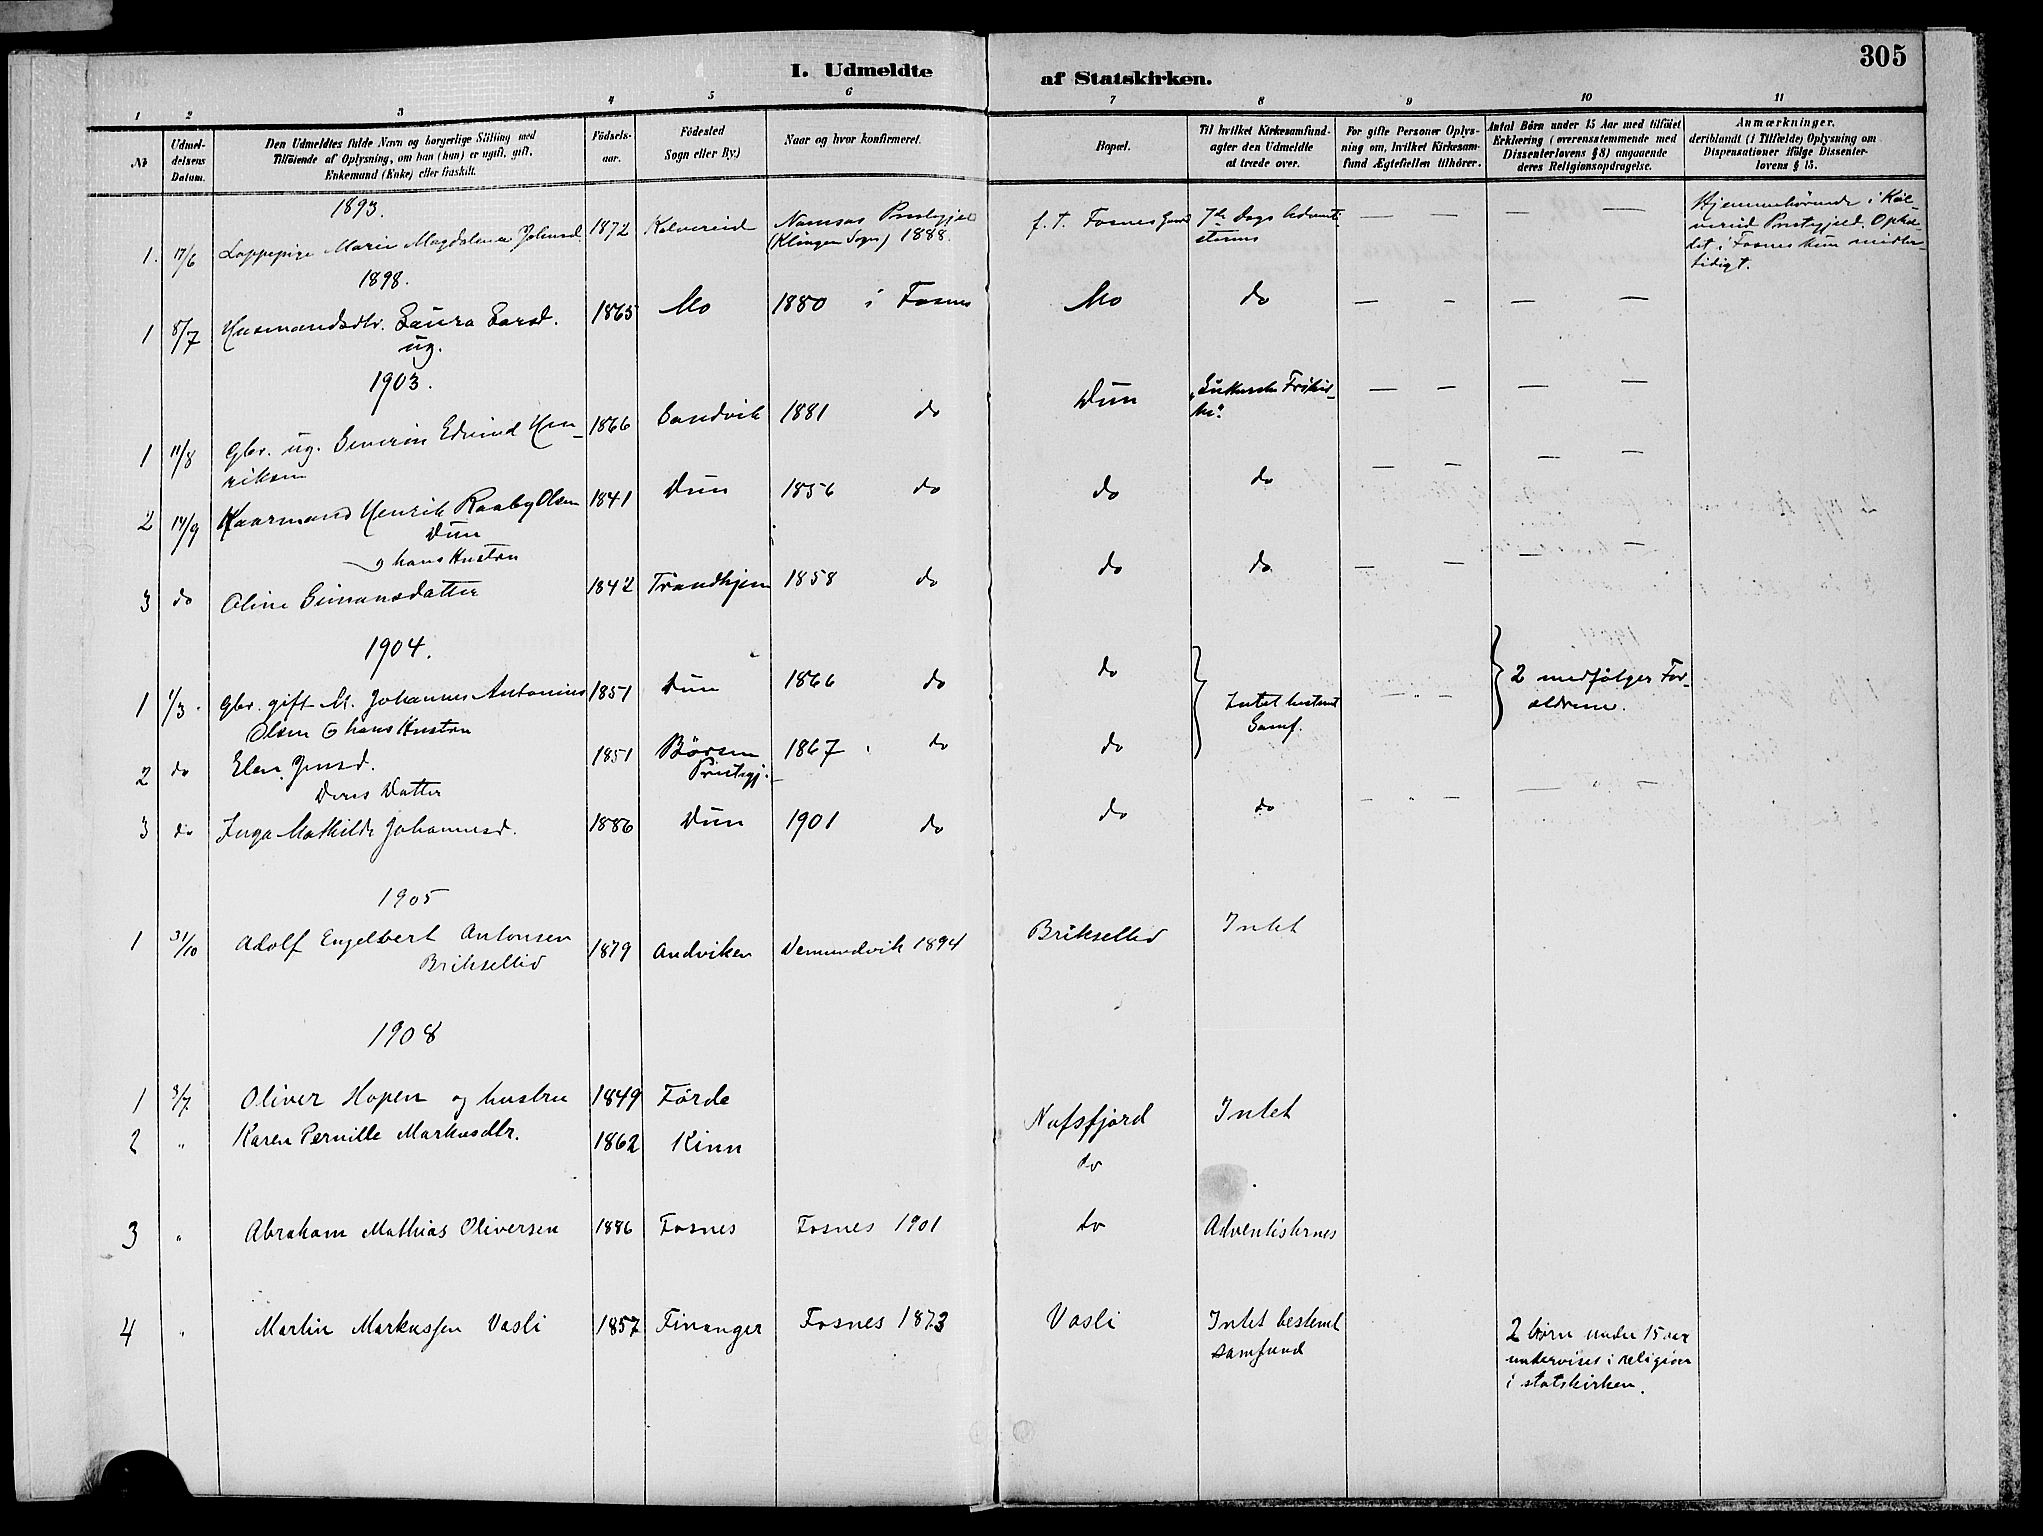 305
I. Udmeldte af Statskirken.
1 2 3 4 5 6 7 8 9 10 11
№
Udmel-
delsens
Datum.
Den Udmeldtes fulde Navn og borgerlige Stilling med
Tilføiende af Oplysning, om han (hun) er ugift, gift,
Enkemand (Enke) eller fraskilt.
Fødsels-
aar.
Fødested
Sogn eller By.)
Naar og hvor konfirmeret.
Bopæl.
Til hvilket Kirkesamfund
agter den Udmeldte
at træde over.
For gifte Personer Oplys-
ning om, hvilket Kirkesam-
fund Ægtefællen tilhører.
Antal Børn under 15 Aar med tilføiet
Erklæring (overensstemmende med
Dissenterlovens § 8) angaaende
deres Religionsopdragelse.
Anmærkninger,
deriblandt (i Tilfælde) Oplysning om
Dispensationer ifølge Dissenter-
lovens § 15.
1893.
1. 17/6 Marie Magdalena Johnsd. 1872 Kolvereid Namsos Prestegjeld
(Klingen Sogn) 1888. f. T. Fosnes 7de Dags Adventi-
sterne — — — —
Hjemmehørende i Kol-
vereid Prestgjeld. Ophol-
det i Fosnes kun midler-
tidigt.
1898.
1 8/7 Husmandsdtr. Laura Larsd. 1865 Mo 1880 i Fosnes Mo do — — — —
ug.
1903.
1 11/8 Gbr. ug. Severin Edvind Hen- 1866 Sandvik 1881 do Dun "Lutherske Frikir-
ke". — — — —
riksen
2 14/9 Kaarmand Henrik Raaby Olsen 1841 Dun 1856 do do do — — — —
Dun
og hans Hustru
3 do Oline Simonsdatter 1842 Trondhjem 1858 do do do — — —
1904.
1 1/3. Gbr. gift M. Johannes Antonius 1851 Dun 1866 do do Intet bestemt
Samf. 2 medfølger For-
ældrene.
Olsen & hans Hustru
2 do Elen Jensd. 1851 Børsen
Prestgj. 1867 do do
Deres Datter
3 do Inga Mathilde Johannesd. 1886 Dun 1901 do do do
1905
1 31/10 Adolf Engelbert Antonsen 1879 Andviken Vemundvik 1894 Briksellid Intet
Briksellid
1908
1 3/7 Oliver Hopen og hustru 1849 Førde Nufsfjord Intet
2 " Karen Pernille Markusdtr. 1862 Kinn do
3 " Abraham Mathias Oliversen 1886 Fosnes Fosnes 1901 do Adventisternes
4 " Martin Markussen Vasli 1857 Finanger Fosnes 1873 Vasli Intet bestemt
samfund
2 børn under 15 aar
undervises i religion
i statskirken.